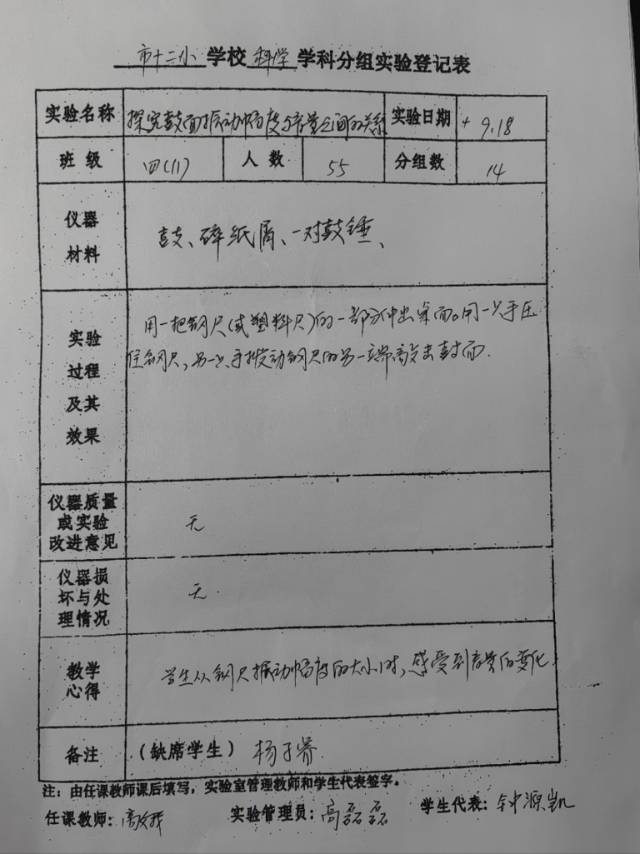 市十二小 学校 科学 学科分组实验登记表
实验名称 探究鼓面振动幅度与音量之间的关系 实验日期 9.18
班级 四(1) 人数 55 分组数 14
仪器材料 鼓、碎纸屑、一对鼓锤、
实验过程及其效果
用一把钢尺(或塑料尺)的一部分伸出桌面。用一只手压
住钢尺,另一只手拨动钢尺的另一端敲击鼓面.
仪器质量或实验改进意见 无
仪器损坏与处理情况 无.
教学心得 学生从钢尺振动幅度的大小时,感受到音量的变化.
备注 (缺席学生) 杨子睿
注:由任课教师课后填写,实验室管理教师和学生代表签字。
任课教师: 实验管理员:高磊磊 学生代表: